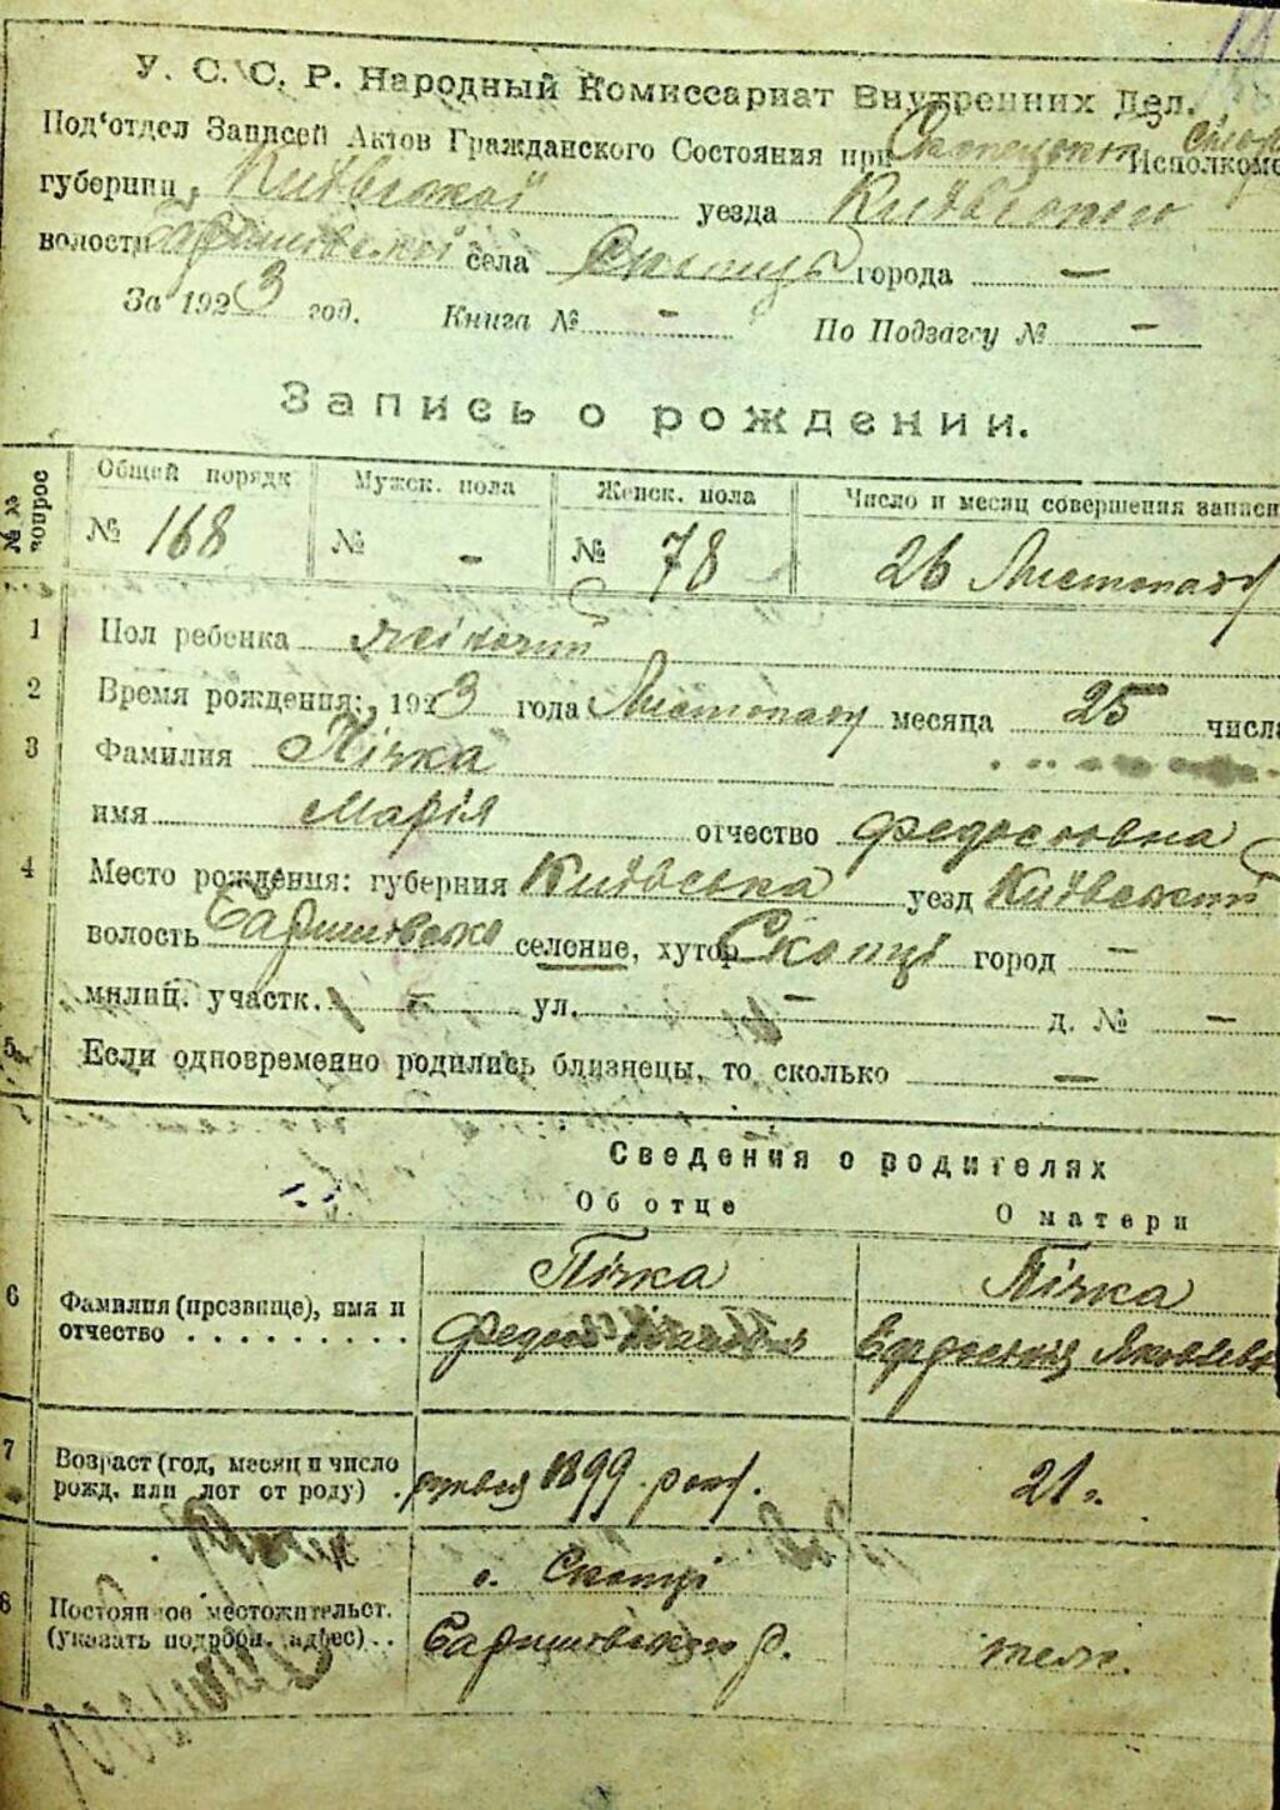 У. С. С. Р. Народный Комиссариат Внутренних Дел.
Под'отдел Записей Актов Гражданского Состояния при Исполкоме
губернии Київської уезда Київського
волости Баришівської села Скопці города —
За 1923 год. Книга № — По Подзагсу № —
Запись о рождении.
№№ вопрос
Общей порядк № 168
Мужск. пола № -
Женск. пола № 78
Число и месяц совершения записи 26 Листопаду
1 Пол ребенка жіночий
2 Время рождения: 1923 года Листопаду месяца 25 числа
3 Фамилия Пічка
имя Марія отчество Федосіовна
4 Место рождения: губерния Київська уезд Київський
волость Баришівська селение, хутор Скопці город —
милиц. участк. — ул. — д. № —
5 Если одновременно родились близнецы, то сколько —
Сведения о родителях
Об отце О матери
6 Фамилия (прозвище), имя и отчество
Пічка
Федос
Пічка
Ефросинія Яковлевн
7 Возраст (год, месяц и число рожд. или лет от роду)
1899 року.
21 р.
8 Постоянное местожительст. (указать подробн. адрес)
с. Скопці
Баришівського р.
теж.